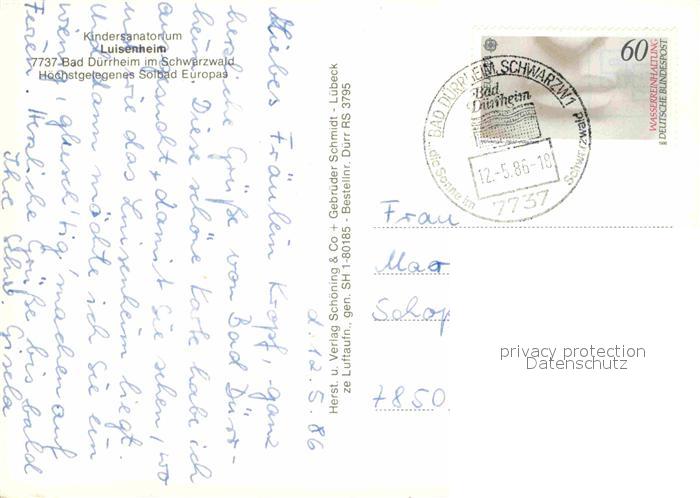 Kindersanatorium
Luisenheim
7737 Bad Dürrheim im Schwarzwald
Höchstgelegenes Solbad Europas
d. 12. 5. 86
Liebes Fräulein Kropf, ganz
herzliche Grüße von Bad Dürr-
heim. Diese schöne Karte habe ich
ausgesucht, damit Sie sehen, wo
und wie das Luisenheim liegt.
Und dann möchte ich Sie ein
wenig "gluschtig" machen auf
Ferien. Herzliche Grüße bis bald
Ihre Schw. Gisela
Herst. u. Verlag Schöning & Co + Gebrüder Schmidt - Lübeck
ze Luftaufn., gen. SH 1-80185 - Bestellnr. Dürr RS 3795
60
WASSERREINHALTUNG
DEUTSCHE BUNDESPOST
BAD DÜRRHEIM, SCHWARZW 1
Bad
Dürrheim
12.-5.86-18
7737
die Sonne im
Schwarzwald
Frau
Mar
Schop
7850
privacy protection
Datenschutz